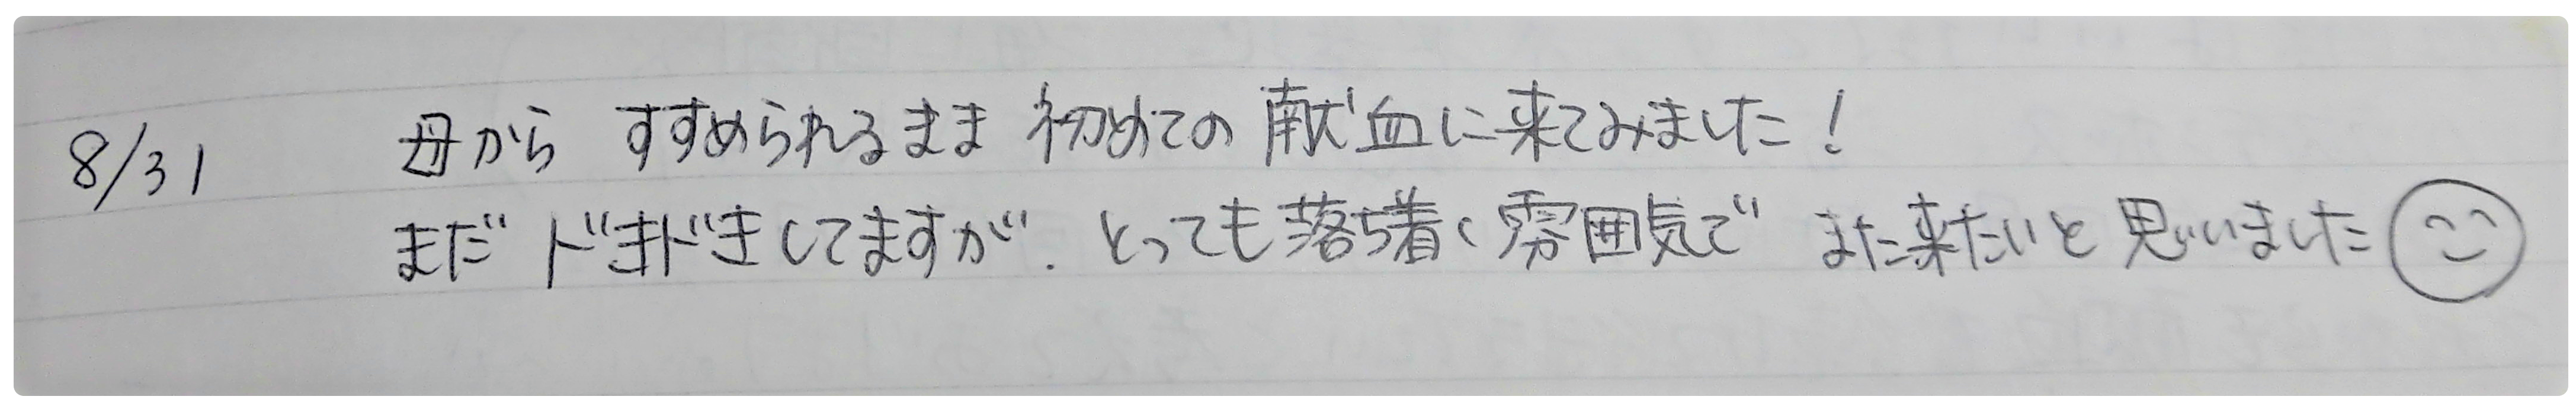 8/31 母から すすめられるまま 初めての 献血に来てみました!
まだ ドキドキしてますが. とっても落ち着く雰囲気で また来たいと思いました